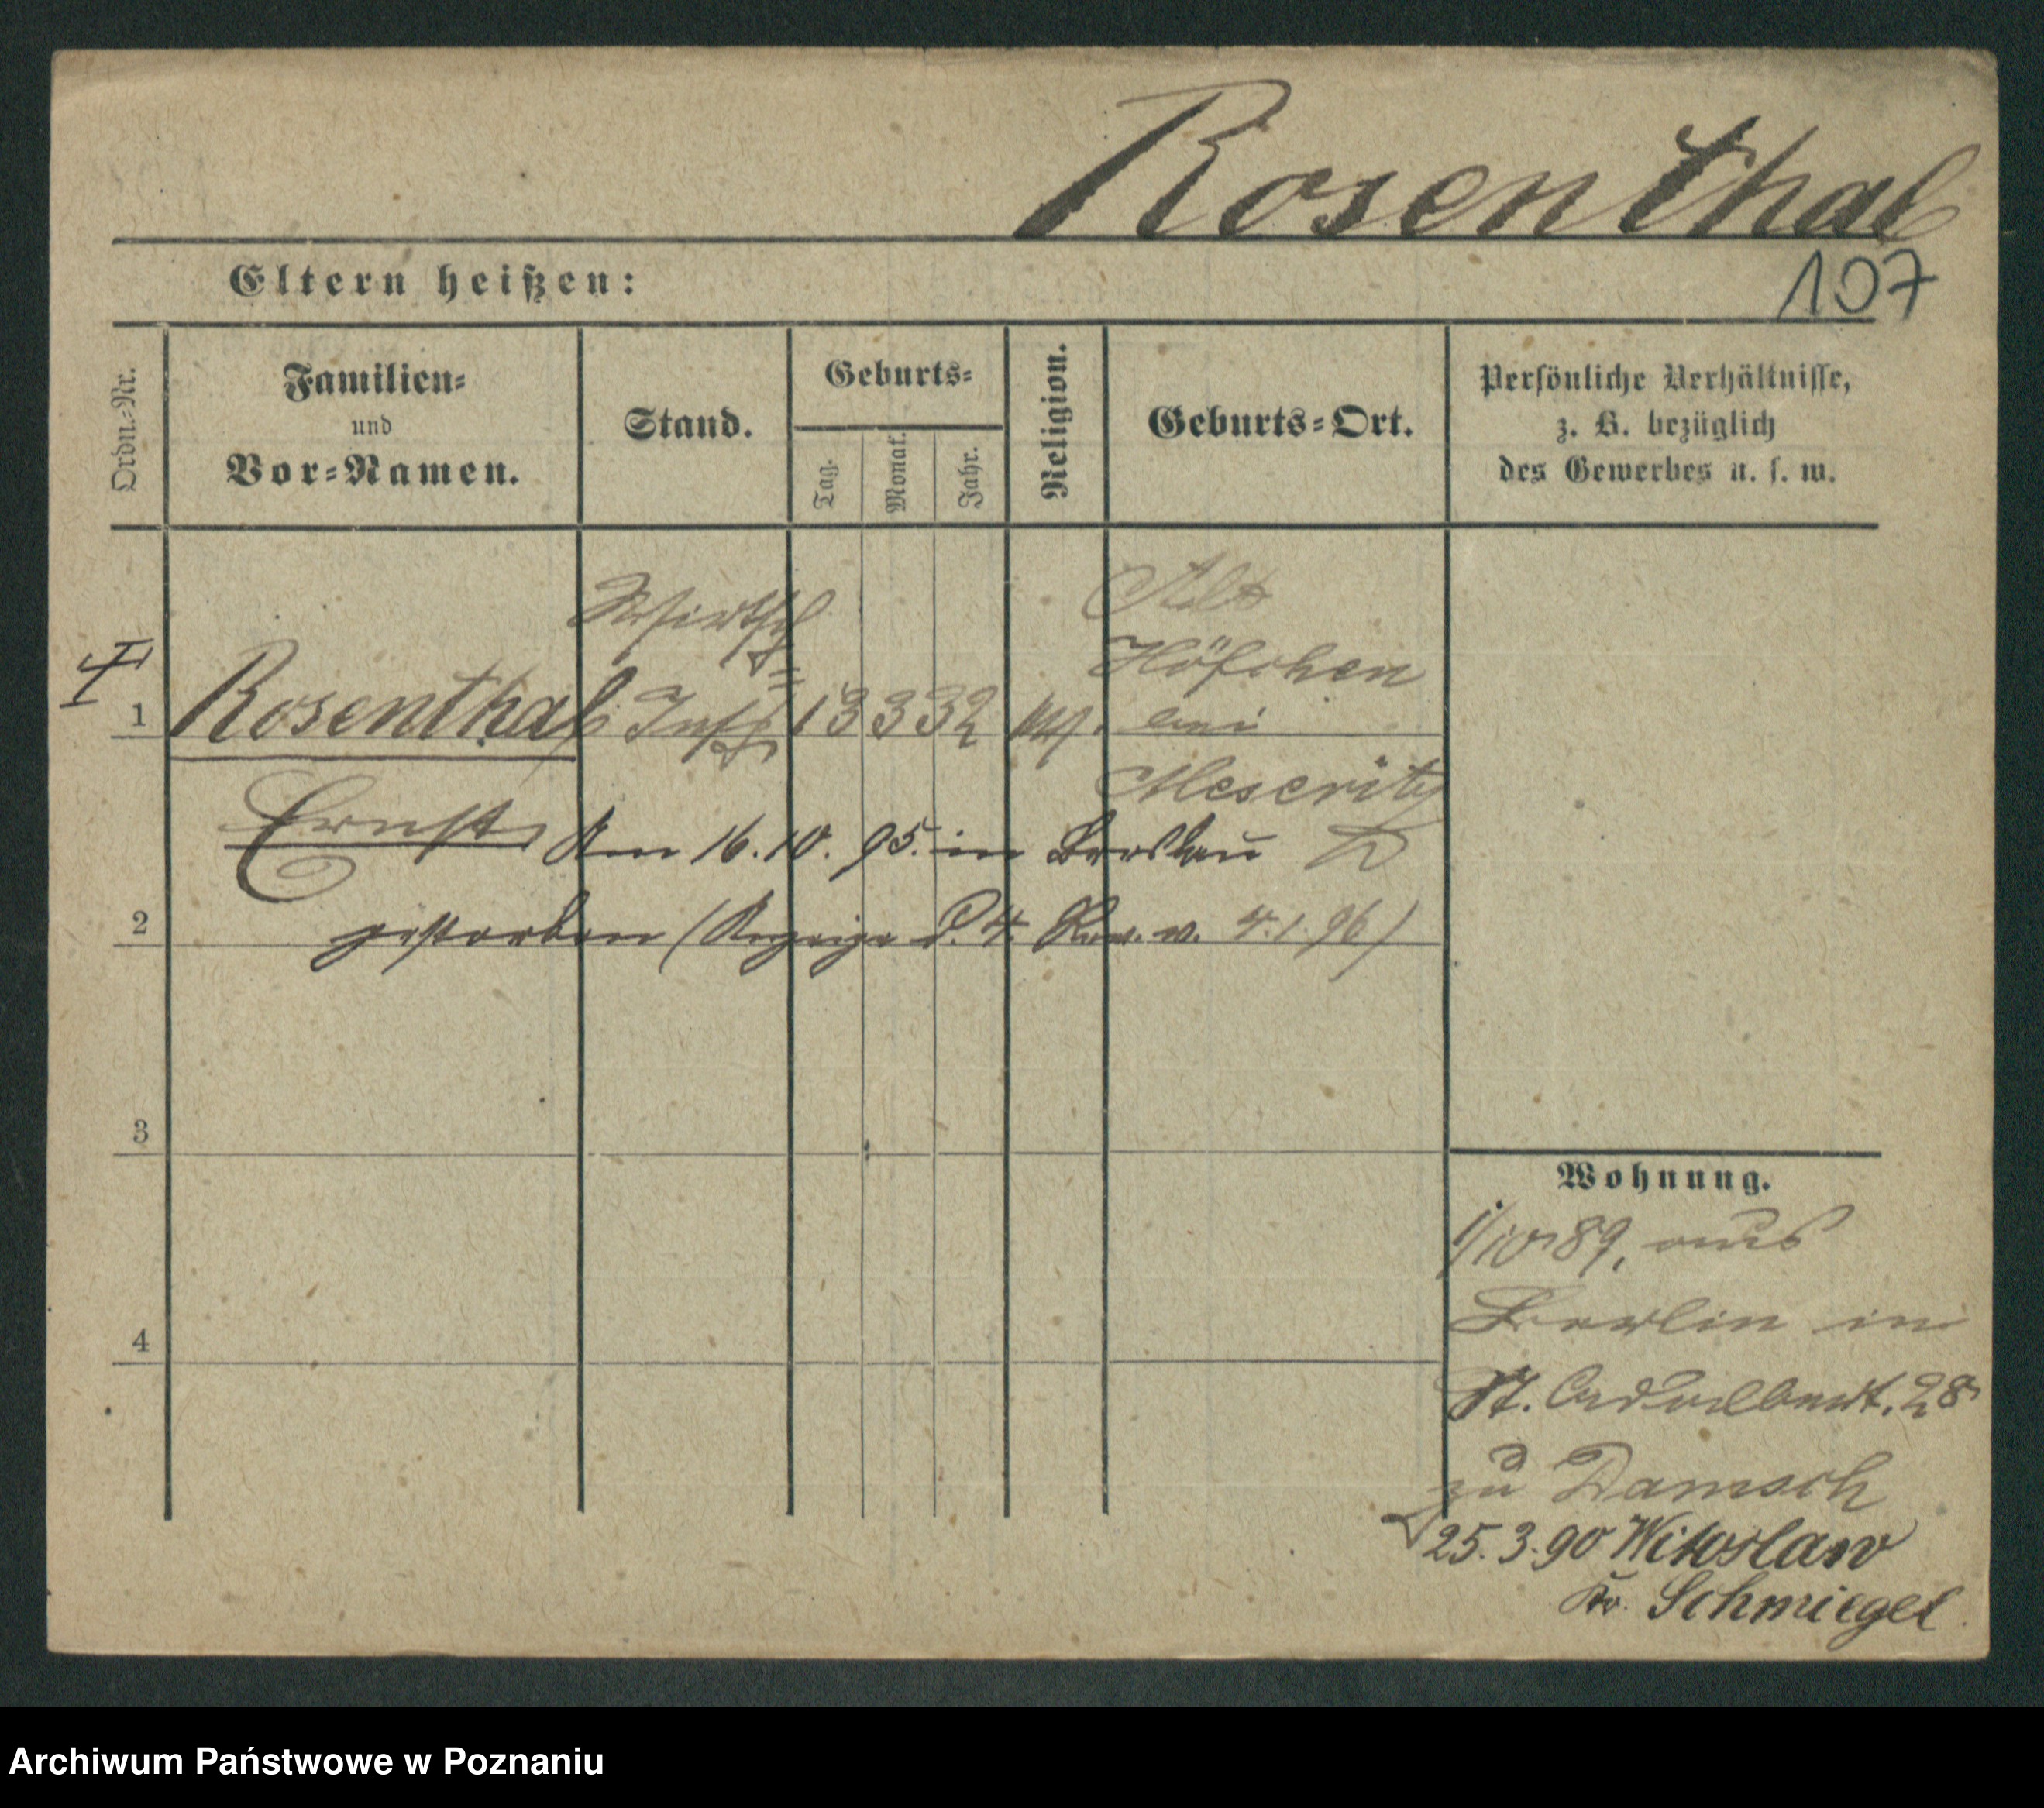 Rosenthal
107
Eltern heißen:
Ordn.-Nr.
Familien-
und
Vor-Namen.
Stand.
Geburts-
Tag.
Monat.
Jahr.
Religion.
Geburts-Ort.
Persönliche Verhältnisse,
z. B. bezüglich
des Gewerbes u. s. w.
1
Rosenthal
Ernst
Wirtsch=
Insp.
13 3 32
Alt
Höfchen
bei
Meseritz
Am 16.10.95. in Breslau
gestorben (Anzeige d. 4. Rev. v. 4.1.96)
2
3
4
Wohnung.
1/10 89, aus
Berlin in
St. Adalbert. 28
zu Damsch
25.3.90 Witoslaw
Kr. Schmiegel
Archiwum Państwowe w Poznaniu